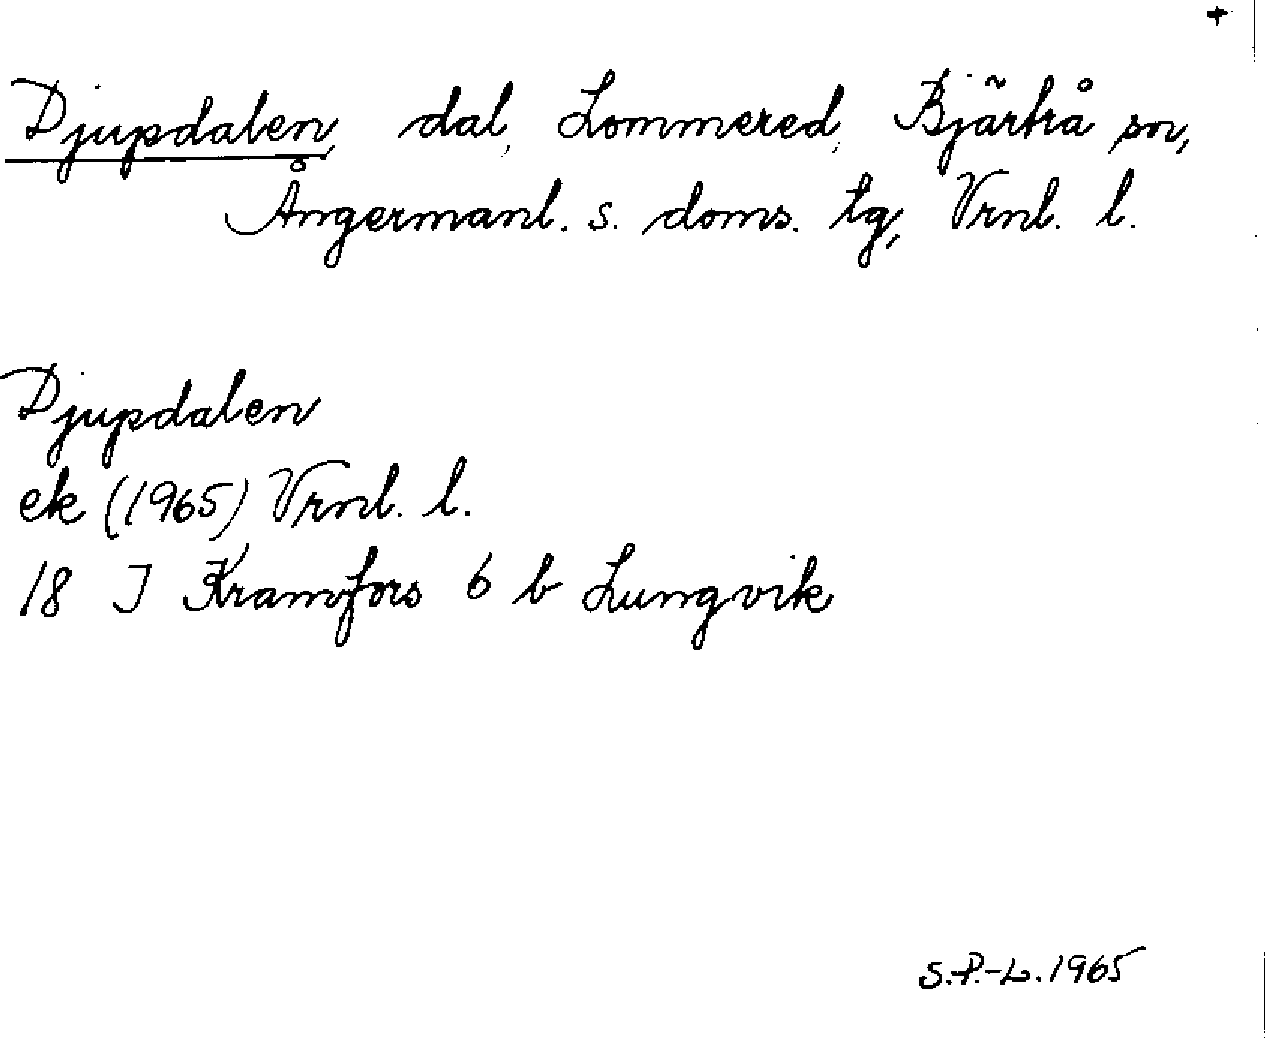 +
Djupdalen, dal, Lommered, Bjärtrå sn,
Ångermanl. s. doms. tg, Vrnl. l.
Djupdalen
ek (1965) Vrnl. l.
18 I Kramfors 6 b Lungvik
S.P.-L. 1965